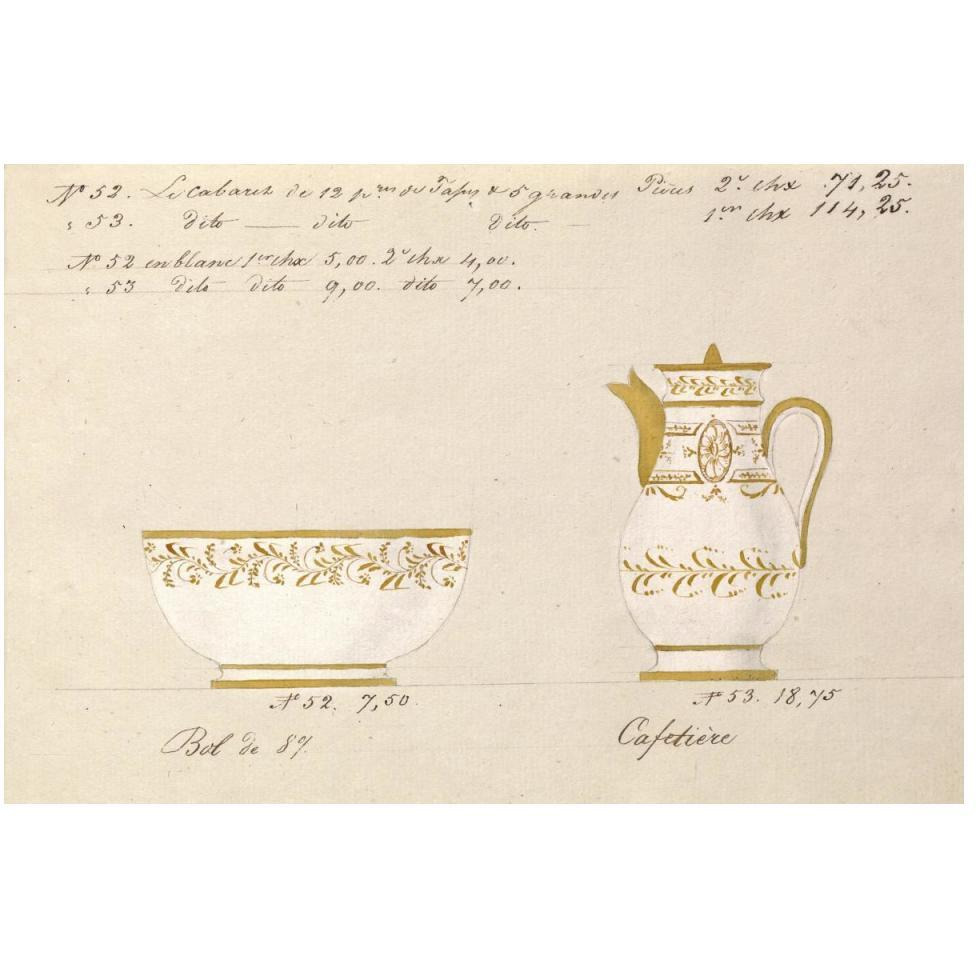 No 52. Le cabaret de 12 prs de Tasses & 5 grandes Pièces 2e chx 71,25.
" 53. dito — dito dito. — 1er chx 114,25.
No 52 en blanc 1er chx 5,00. 2e chx 4,00.
" 53 dito dito 9,00. dito 7,00.
No 52. 7,50
Bol de 8
No 53. 18,75
Cafetière